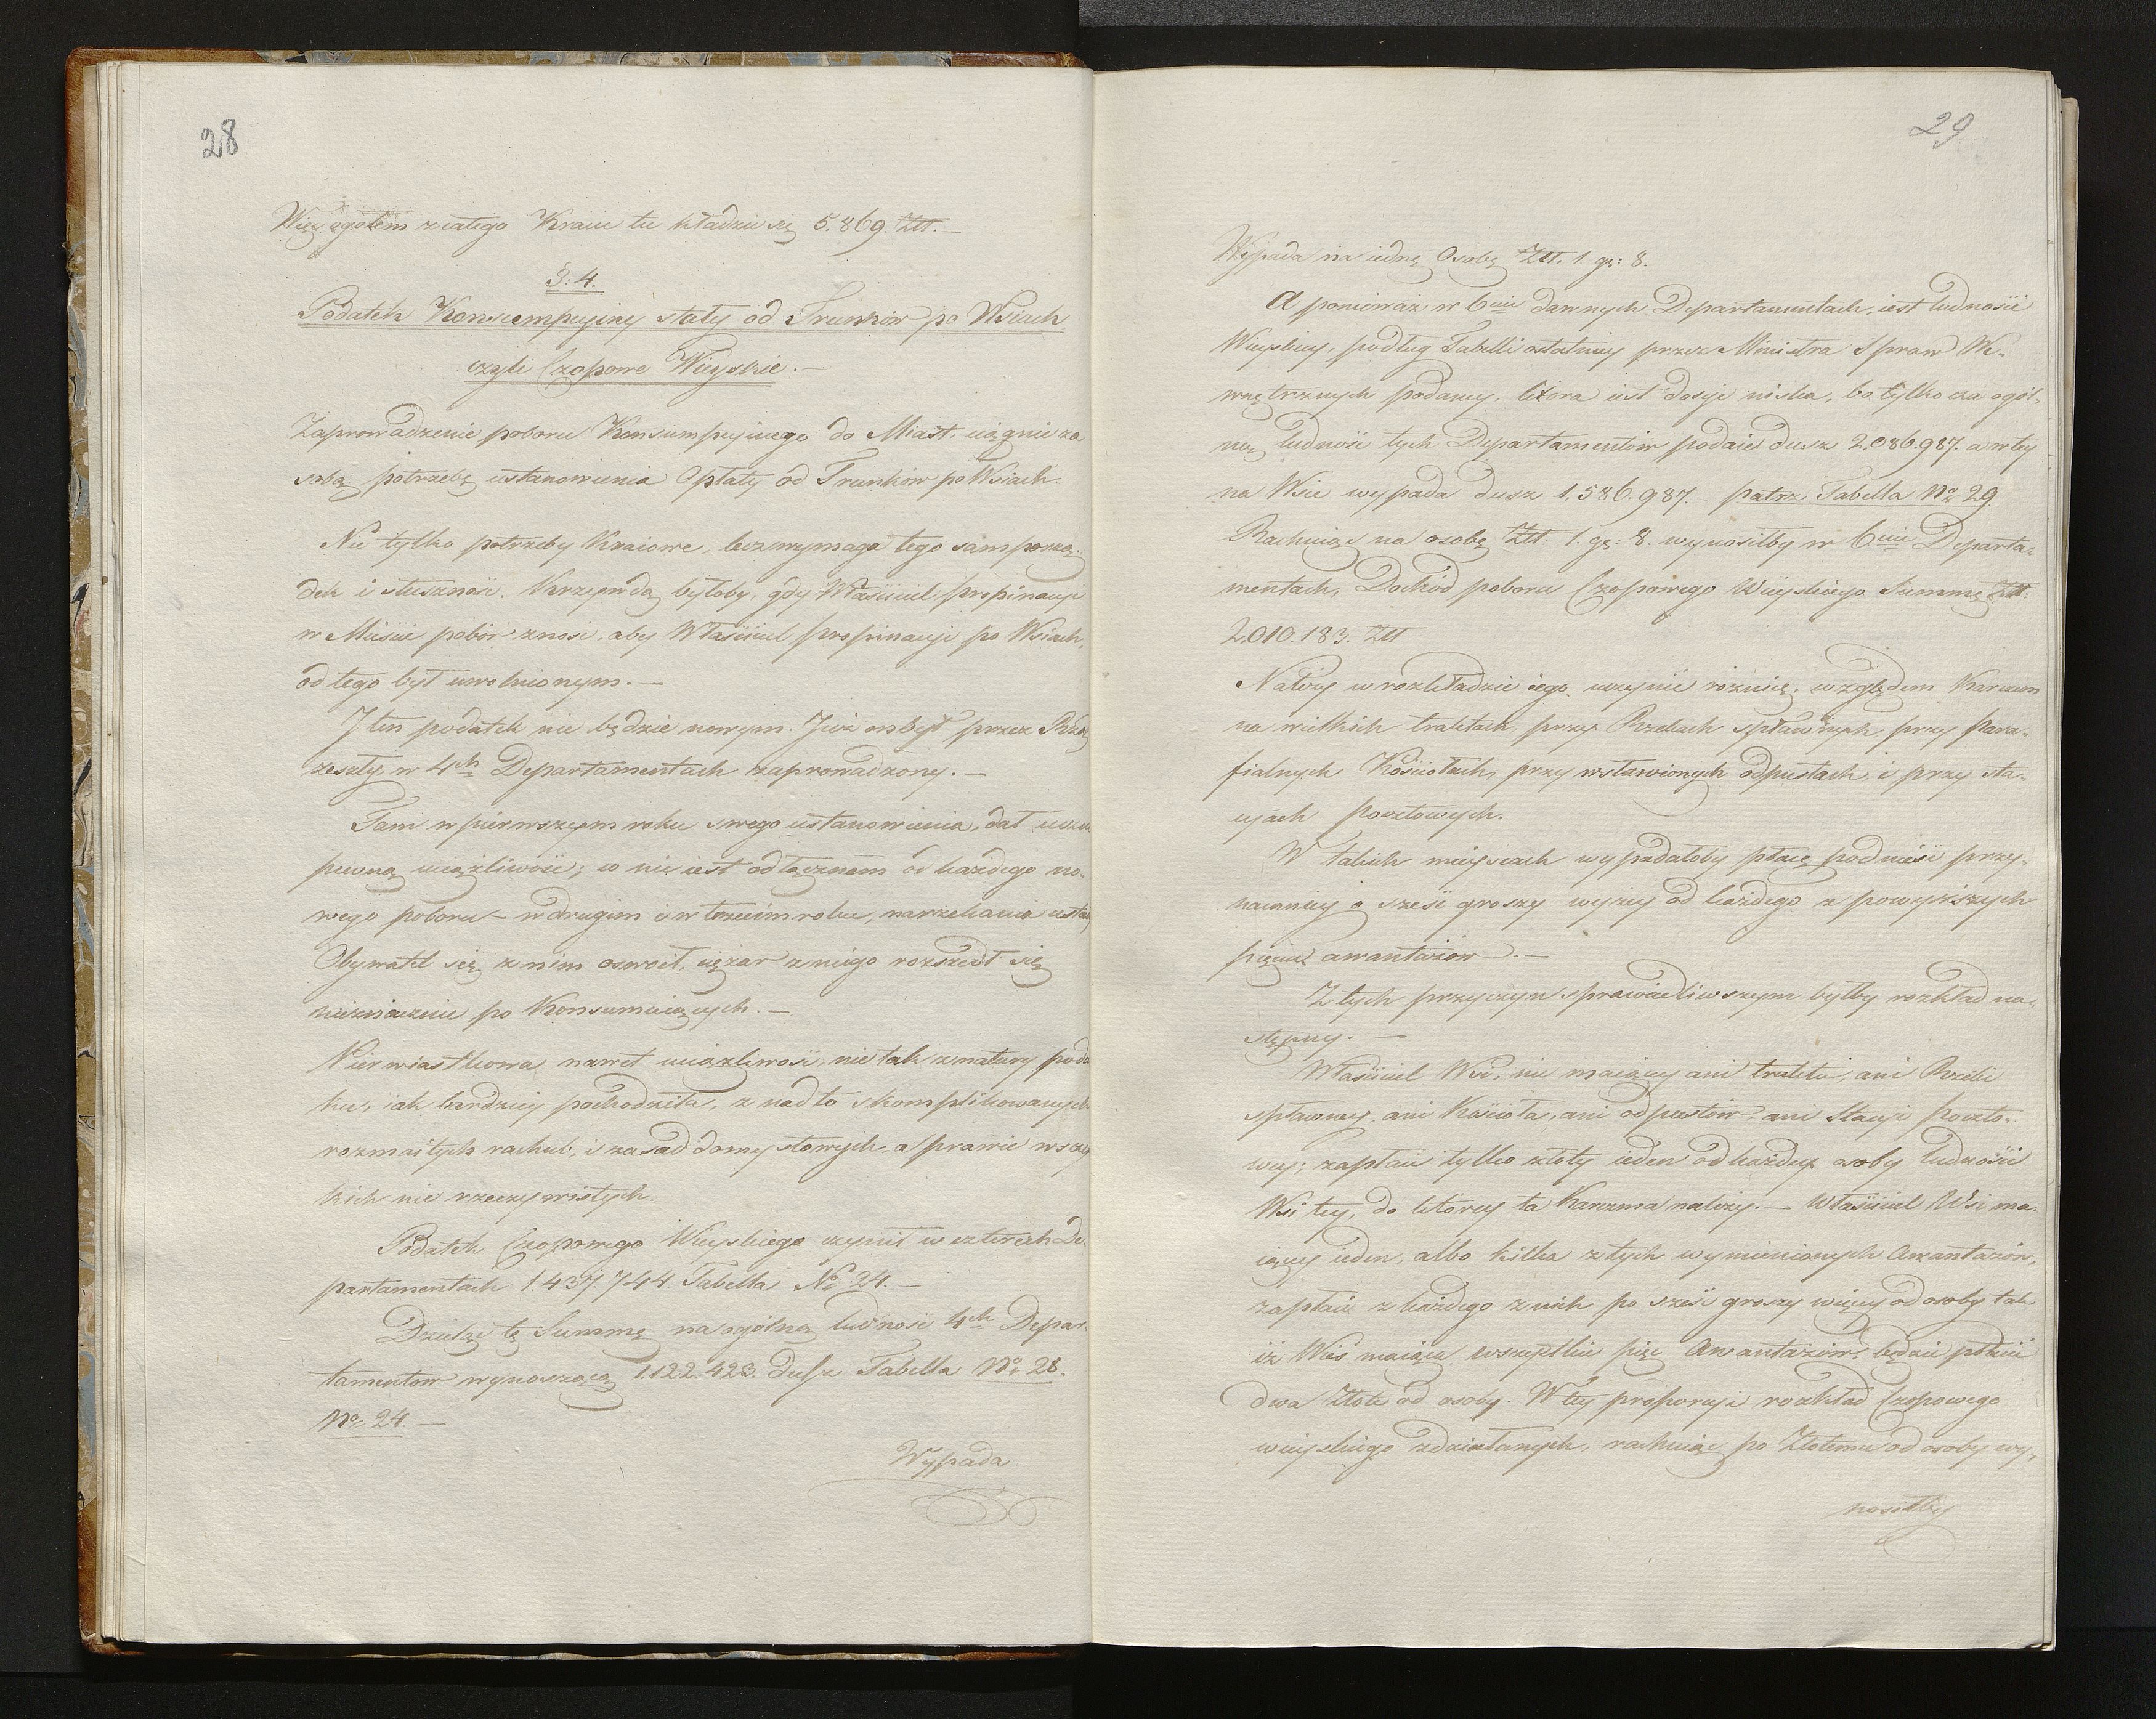 28
Więc ogółem z całego Kraiu tu kładzie się 5.869. Złł.—
§: 4.
Podatek Konsumpcyjny stały od Trunków po Wsiach
czyli Czopowe Wieyskie.—
Zaprowadzenie poboru Konsumpcyinego do Miast, ciągnie za
sobą potrzebę ustanowienia Opłaty od Trunków po Wsiach.
Nie tylko potrzeby Kraiowe, lecz wymaga tego sam porzą-
dek i słuszność. Krzywdą byłoby, gdy Właściciel propinacyi
w Mieście pobór znosi, aby Właściciel propinacyi po Wsiach,
od tego był uwolnionym.—
I ten podatek nie będzie nowym. Już on był przez Rząd
zeszły w 4ch Departamentach zaprowadzony.—
Tam w pierwszym roku swego ustanowienia, dał uczuć
pewną uciążliwość; co nie iest odłącznem od każdego no-
wego poboru— w drugim i w trzecim roku, narzekania ustały
Obywatel się z nim oswoił, ciężar z niego rozszedł się
nieznacznie po Konsumuiących.—
Pierwiastkowa nawet uciążliwość, nie tak z natury poda
tku, iak bardziey pochodziła, z nadto skomplikowanych
rozmaitych rachub, i zasad domysłowych, a prawie wszy
kich nie rzeczywistych.
Podatek Czopowego Wieyskiego czynił w czterech De-
partamentach 1.437.744. Tabella No 24.—
Dzieląc tę Summę na ogólną ludność 4ch Depar-
tamentow wynoszącą 1.122.423. Dusz Tabella No 28.
No 24.—
Wypada
29
Wypada na iednę Osobę Złł. 1 gr: 8.
A ponieważ w 6ciu dawnych Departamentach, iest ludności
Wieyskiey, podług Tabelli ostatniey przez Ministra Spraw We-
wnętrznych podaney, która iest dosyć niska, bo tylko za ogól-
ną ludność tych Departamentów podaie dusz 2.086.987. a w tey
na Wsie wypada dusz 1,586.987.— patrz Tabella No 29
Rachuiąc na osobę Złł. 1. gr: 8. wynosiłby w 6ciu Departa-
mentach, Dochód poboru Czopowego Wieyskiego Summę Złł.
2.010.183. Złł
Należy w rozkładzie iego uczynić różnicę, względem Karczem
na wielkich traktach przy Rzekach spławnych, przy para-
fialnych Kościołach, przy wsławionych odpustach, i przy sta-
cyach pocztowych.
W takich mieyscach wypadałoby płacę podnieść przy-
naymniey o sześć groszy wyżey od każdego z powyższych
pięciu awantażów.—
Z tych przyczyn sprawiedliwszym byłby rozkład na-
stępny.—
Właściciel Wsi, nie maiący ani traktu, ani Rzeki
spławney, ani Kościoła, ani odpustów, ani Stacyi poczto-
wey; zapłaci tylko złoty ieden od każdey osoby ludności
Wsi tey, do którey ta Karczma należy.— Właściciel Wsi ma-
iący ieden, albo kilka z tych wymienionych Awantażów,
zapłaci z każdego z nich po sześć groszy więcey od osoby tak
iż Wieś maiąca wszystkie pięć Awantażów, będzie płacić
dwa Złote od osoby. W tey proporcyi rozkład Czopowego
wieyskiego zdziałanych, rachuiąc po Złotemu od osoby wy-
nosiłby